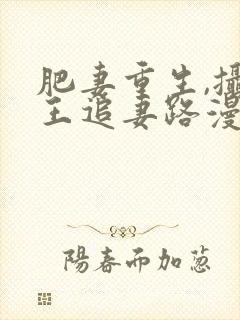 肥妻重生,攝
王追妻路漫
陽春而加蔥